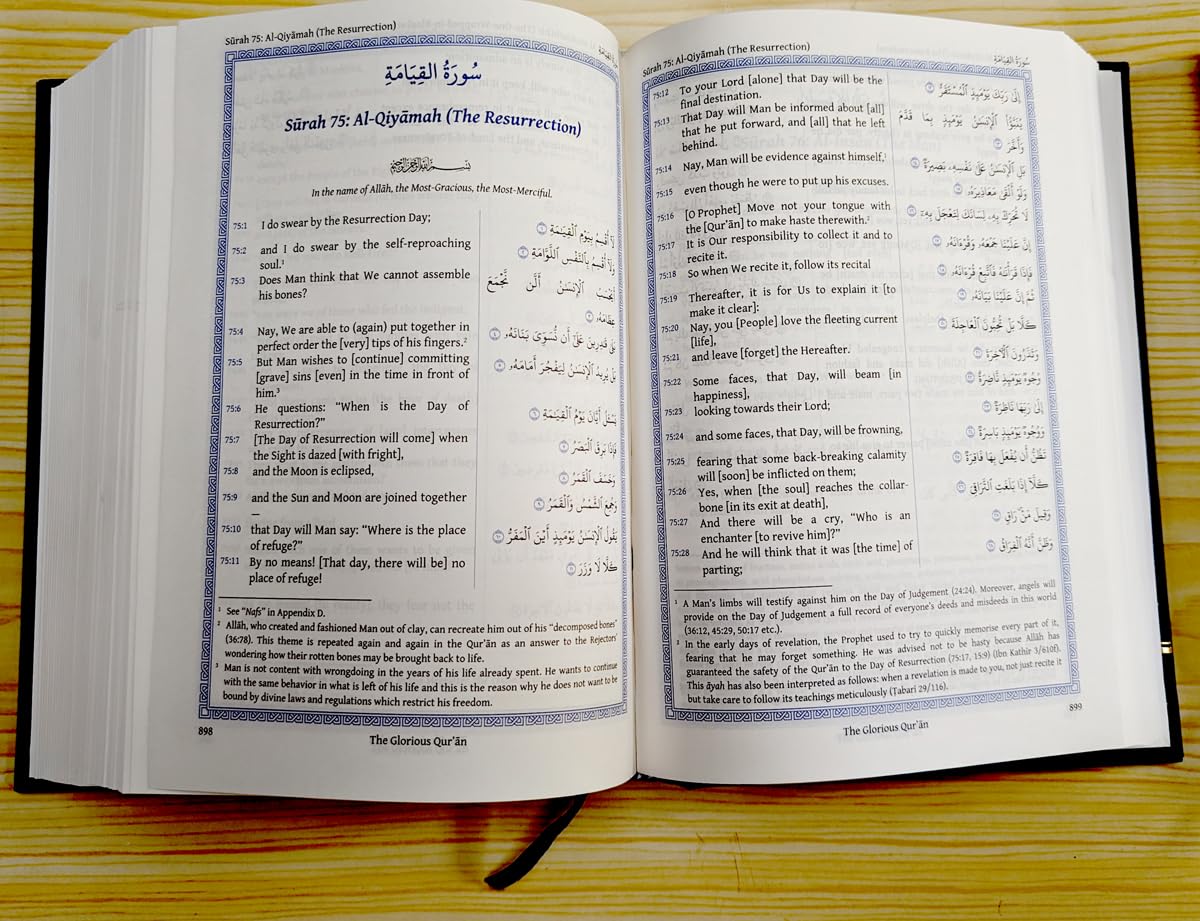 Sūrah 75: Al-Qiyāmah (The Resurrection)
سُورَةُ القِيَامَةِ
Sūrah 75: Al-Qiyāmah (The Resurrection)
بِسْمِ اللَّهِ الرَّحْمَٰنِ الرَّحِيمِ
In the name of Allāh, the Most-Gracious, the Most-Merciful.
75:1 I do swear by the Resurrection Day;
75:2 and I do swear by the self-reproaching
soul.¹
75:3 Does Man think that We cannot assemble
his bones?
75:4 Nay, We are able to (again) put together in
perfect order the [very] tips of his fingers.²
75:5 But Man wishes to [continue] committing
[grave] sins [even] in the time in front of
him.³
75:6 He questions: “When is the Day of
Resurrection?”
75:7 [The Day of Resurrection will come] when
the Sight is dazed [with fright],
75:8 and the Moon is eclipsed,
75:9 and the Sun and Moon are joined together
—
75:10 that Day will Man say: “Where is the place
of refuge?”
75:11 By no means! [That day, there will be] no
place of refuge!
لَآ أُقْسِمُ بِيَوْمِ ٱلْقِيَٰمَةِ ١
وَلَآ أُقْسِمُ بِٱلنَّفْسِ ٱللَّوَّامَةِ ٢
أَيَحْسَبُ ٱلْإِنسَٰنُ أَلَّن نَّجْمَعَ
عِظَامَهُۥ ٣
بَلَىٰ قَٰدِرِينَ عَلَىٰٓ أَن نُّسَوِّىَ بَنَانَهُۥ ٤
بَلْ يُرِيدُ ٱلْإِنسَٰنُ لِيَفْجُرَ أَمَامَهُۥ ٥
يَسْـَٔلُ أَيَّانَ يَوْمُ ٱلْقِيَٰمَةِ ٦
فَإِذَا بَرِقَ ٱلْبَصَرُ ٧
وَخَسَفَ ٱلْقَمَرُ ٨
وَجُمِعَ ٱلشَّمْسُ وَٱلْقَمَرُ ٩
يَقُولُ ٱلْإِنسَٰنُ يَوْمَئِذٍ أَيْنَ ٱلْمَفَرُّ ١٠
كَلَّا لَا وَزَرَ ١١
¹ See “Nafs” in Appendix D.
² Allāh, who created and fashioned Man out of clay, can recreate him out of his “decomposed bones”
(36:78). This theme is repeated again and again in the Qur’ān as an answer to the Rejectors’
wondering how their rotten bones may be brought back to life.
³ Man is not content with wrongdoing in the years of his life already spent. He wants to continue
with the same behavior in what is left of his life and this is the reason why he does not want to be
bound by divine laws and regulations which restrict his freedom.
898
The Glorious Qur’ān
Sūrah 75: Al-Qiyāmah (The Resurrection)
سُورَةُ القِيَامَةِ
75:12 To your Lord [alone] that Day will be the
final destination.
75:13 That Day will Man be informed about [all]
that he put forward, and [all] that he left
behind.
75:14 Nay, Man will be evidence against himself,¹
75:15 even though he were to put up his excuses.
75:16 [O Prophet] Move not your tongue with
the [Qur’ān] to make haste therewith.²
75:17 It is Our responsibility to collect it and to
recite it.
75:18 So when We recite it, follow its recital
75:19 Thereafter, it is for Us to explain it [to
make it clear]:
75:20 Nay, you [People] love the fleeting current
[life],
75:21 and leave [forget] the Hereafter.
75:22 Some faces, that Day, will beam [in
happiness],
75:23 looking towards their Lord;
75:24 and some faces, that Day, will be frowning,
75:25 fearing that some back-breaking calamity
will [soon] be inflicted on them;
75:26 Yes, when [the soul] reaches the collar-
bone [in its exit at death],
75:27 And there will be a cry, “Who is an
enchanter [to revive him]?”
75:28 And he will think that it was [the time] of
parting;
إِلَىٰ رَبِّكَ يَوْمَئِذٍ ٱلْمُسْتَقَرُّ ١٢
يُنَبَّؤُا۟ ٱلْإِنسَٰنُ يَوْمَئِذٍۭ بِمَا قَدَّمَ
وَأَخَّرَ ١٣
بَلِ ٱلْإِنسَٰنُ عَلَىٰ نَفْسِهِۦ بَصِيرَةٌ ١٤
وَلَوْ أَلْقَىٰ مَعَاذِيرَهُۥ ١٥
لَا تُحَرِّكْ بِهِۦ لِسَانَكَ لِتَعْجَلَ بِهِۦٓ ١٦
إِنَّ عَلَيْنَا جَمْعَهُۥ وَقُرْءَانَهُۥ ١٧
فَإِذَا قَرَأْنَٰهُ فَٱتَّبِعْ قُرْءَانَهُۥ ١٨
ثُمَّ إِنَّ عَلَيْنَا بَيَانَهُۥ ١٩
كَلَّا بَلْ تُحِبُّونَ ٱلْعَاجِلَةَ ٢٠
وَتَذَرُونَ ٱلْءَاخِرَةَ ٢١
وُجُوهٌ يَوْمَئِذٍ نَّاضِرَةٌ ٢٢
إِلَىٰ رَبِّهَا نَاظِرَةٌ ٢٣
وَوُجُوهٌ يَوْمَئِذٍۭ بَاسِرَةٌ ٢٤
تَظُنُّ أَن يُفْعَلَ بِهَا فَاقِرَةٌ ٢٥
كَلَّآ إِذَا بَلَغَتِ ٱلتَّرَاقِىَ ٢٦
وَقِيلَ مَنْ رَاقٍ ٢٧
وَظَنَّ أَنَّهُ ٱلْفِرَاقُ ٢٨
¹ A Man’s limbs will testify against him on the Day of Judgement (24:24). Moreover, angels will
provide on the Day of Judgement a full record of everyone’s deeds and misdeeds in this world
(36:12, 45:29, 50:17 etc.).
² In the early days of revelation, the Prophet used to try to quickly memorise every part of it,
fearing that he may forget something. He was advised not to be hasty because Allāh has
guaranteed the safety of the Qur’ān to the Day of Resurrection (75:17, 15:9) (Ibn Kathīr 3/610f).
This āyah has also been interpreted as follows: when a revelation is made to you, not just recite it
but take care to follow its teachings meticulously (Tabari 29/116).
899
The Glorious Qur’ān